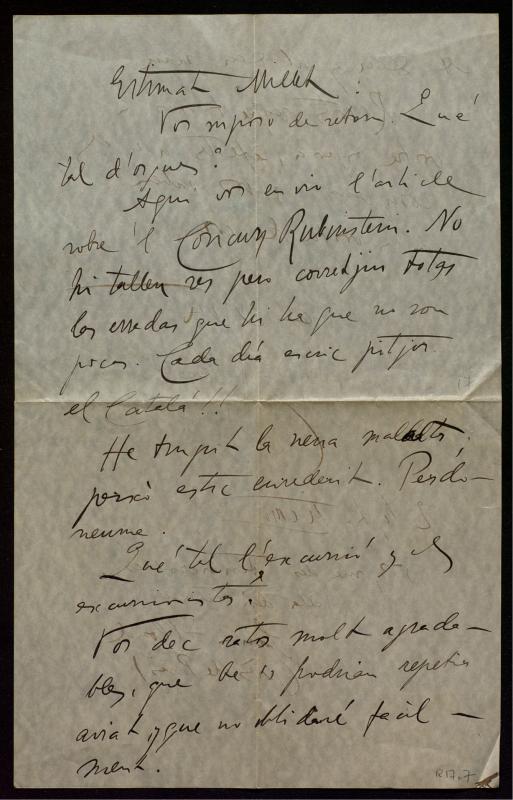 Estimat Millet:
Vos suposo de retorn. Qué
tal d'orgues?
Aqui vos envio l'article
sobre 'l Concurs Rubinstein. No
hi tallen res pero corretjiu totas
las erradas que hi ha que no son
pocas. Cada dia escric pitjor
el Catalá!!
He tingut la nena malalta.
perxó estic enrederit. Perdo-
neume.
Qué tal l'excursió y els
excursionistas?
Vos dec ratos molt agrada-
bles, que be 's podrian repetir
aviat, y que no oblidaré facil-
ment.
17
R17.7